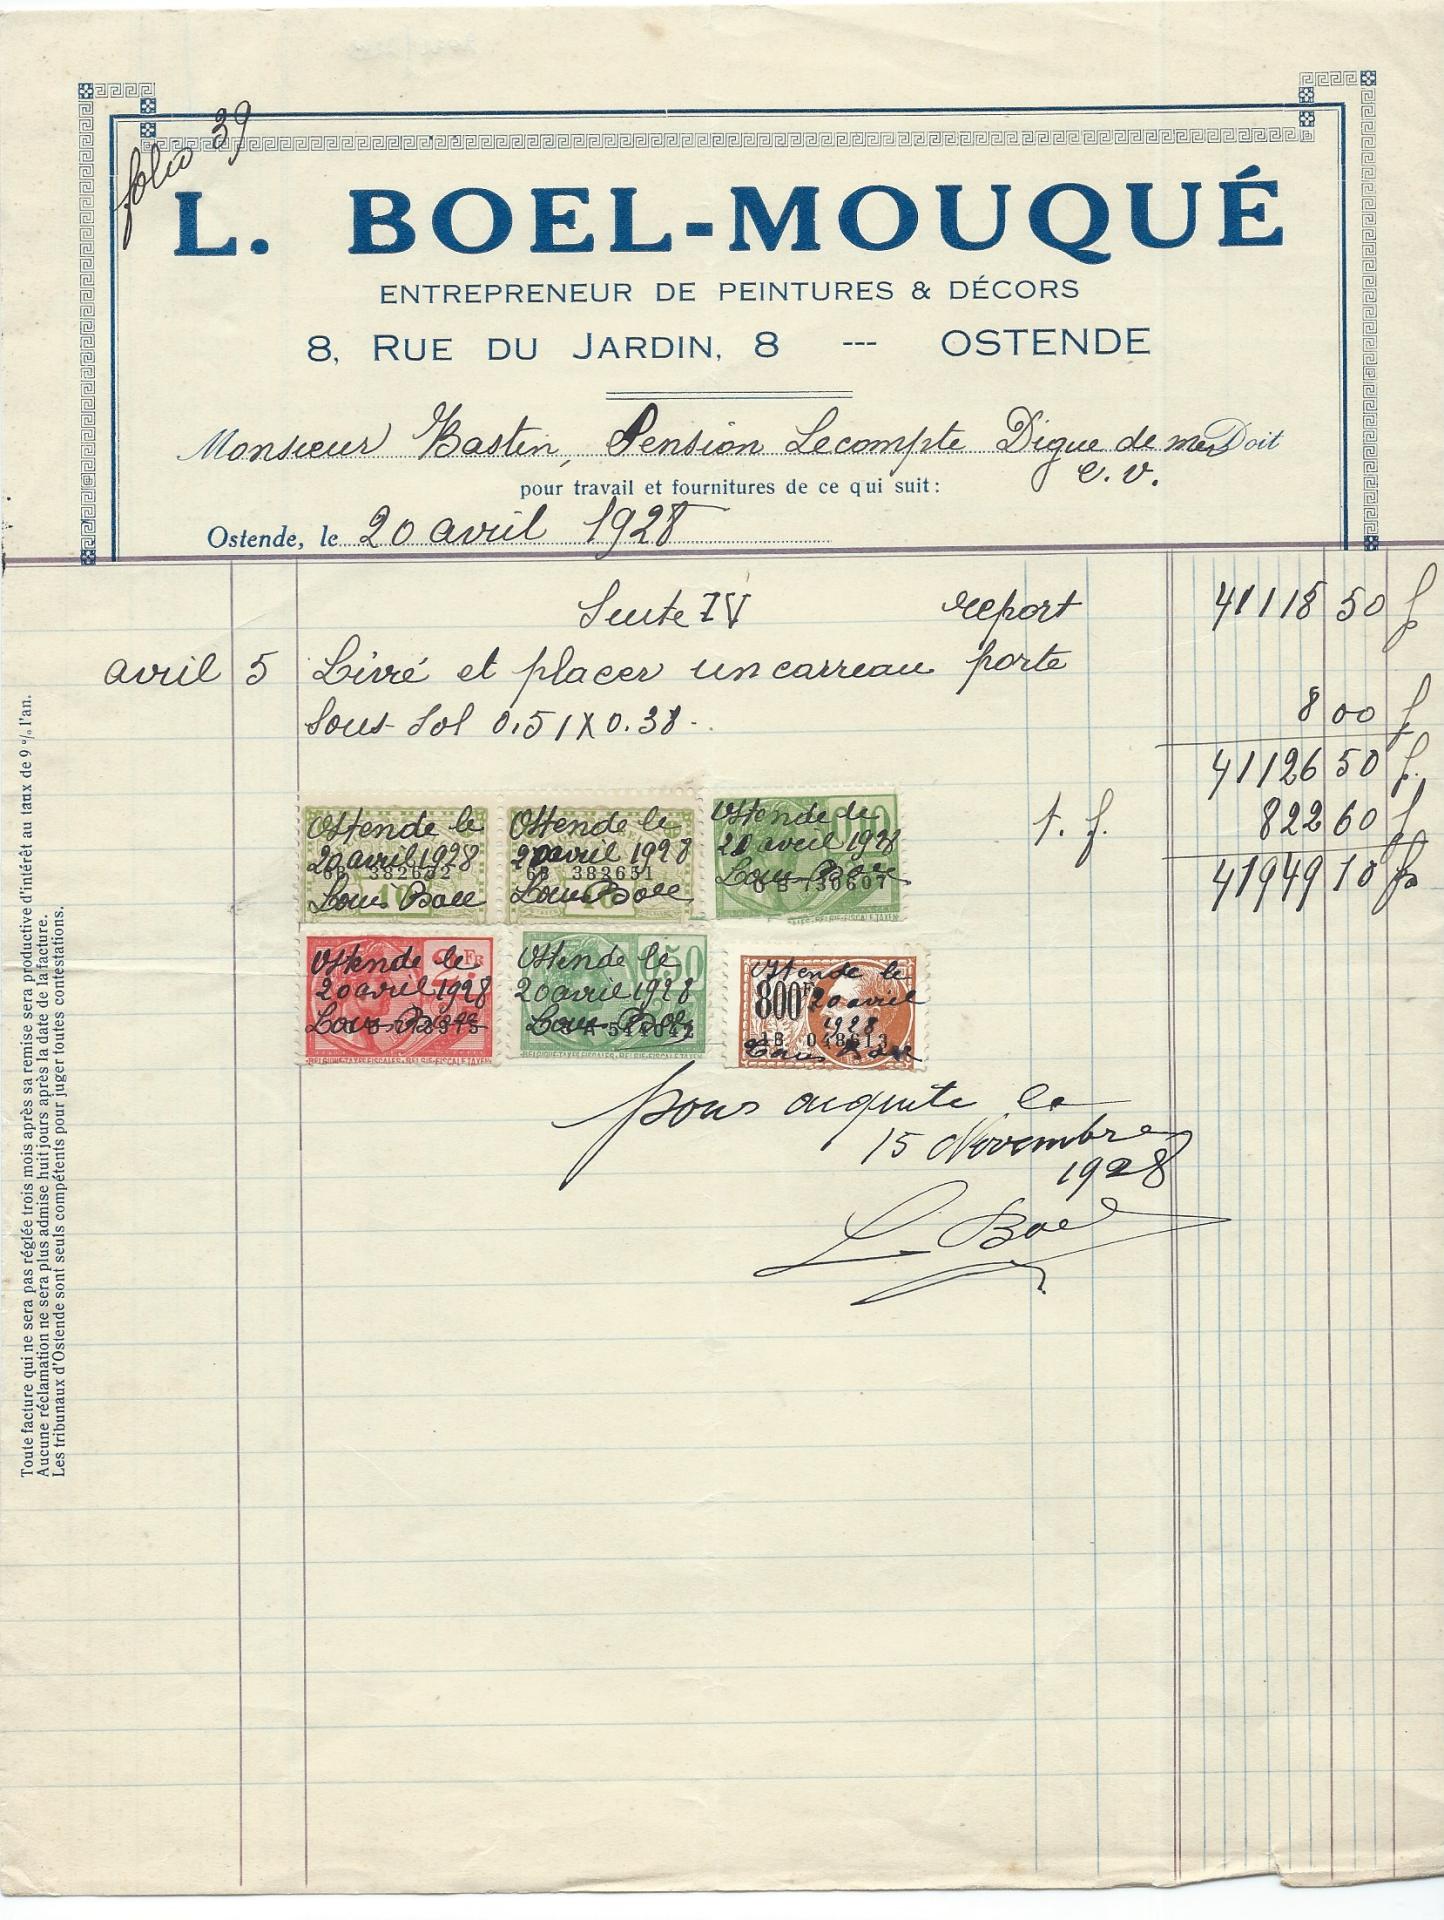 folio 39
L. BOEL-MOUQUÉ
ENTREPRENEUR DE PEINTURES & DÉCORS
8, RUE DU JARDIN, 8 --- OSTENDE
Monsieur Bastin, Pension Lecompte Digue de mer Doit
e. v.
pour travail et fournitures de ce qui suit :
Ostende, le 20 avril 1928
Suite IV report 41118 50 f
avril 5 Livré et placer un carreau porte
sous-sol 0.51 X 0.38 - 8 00 f
41126 50 f.
t. f. 822 60 f
41949 10 fs
Ostende le
20 avril 1928
6B 382652
Louis Boel
Ostende le
20 avril 1928
6B 382651
Louis Boel
Ostende le
20 avril 1928
730607
Louis Boel
2 FR
Ostende le
20 avril 1928
Louis Boel
BELGIQUE-TAXES FISCALES - BELGIE-FISCALE TAXEN
50
Ostende le
20 avril 1928
Louis Boel
BELGIQUE-TAXES FISCALES - BELGIE-FISCALE TAXEN
Ostende le
800 Fr 20 avril
1928
1B 048613
Louis Boel
pour acquit le
15 Novembre
1928
L. Boel
Toute facture qui ne sera pas réglée trois mois après sa remise sera productive d'intérêt au taux de 9 % l'an.
Aucune réclamation ne sera plus admise huit jours après la date de la facture.
Les tribunaux d'Ostende sont seuls compétents pour juger toutes contestations.